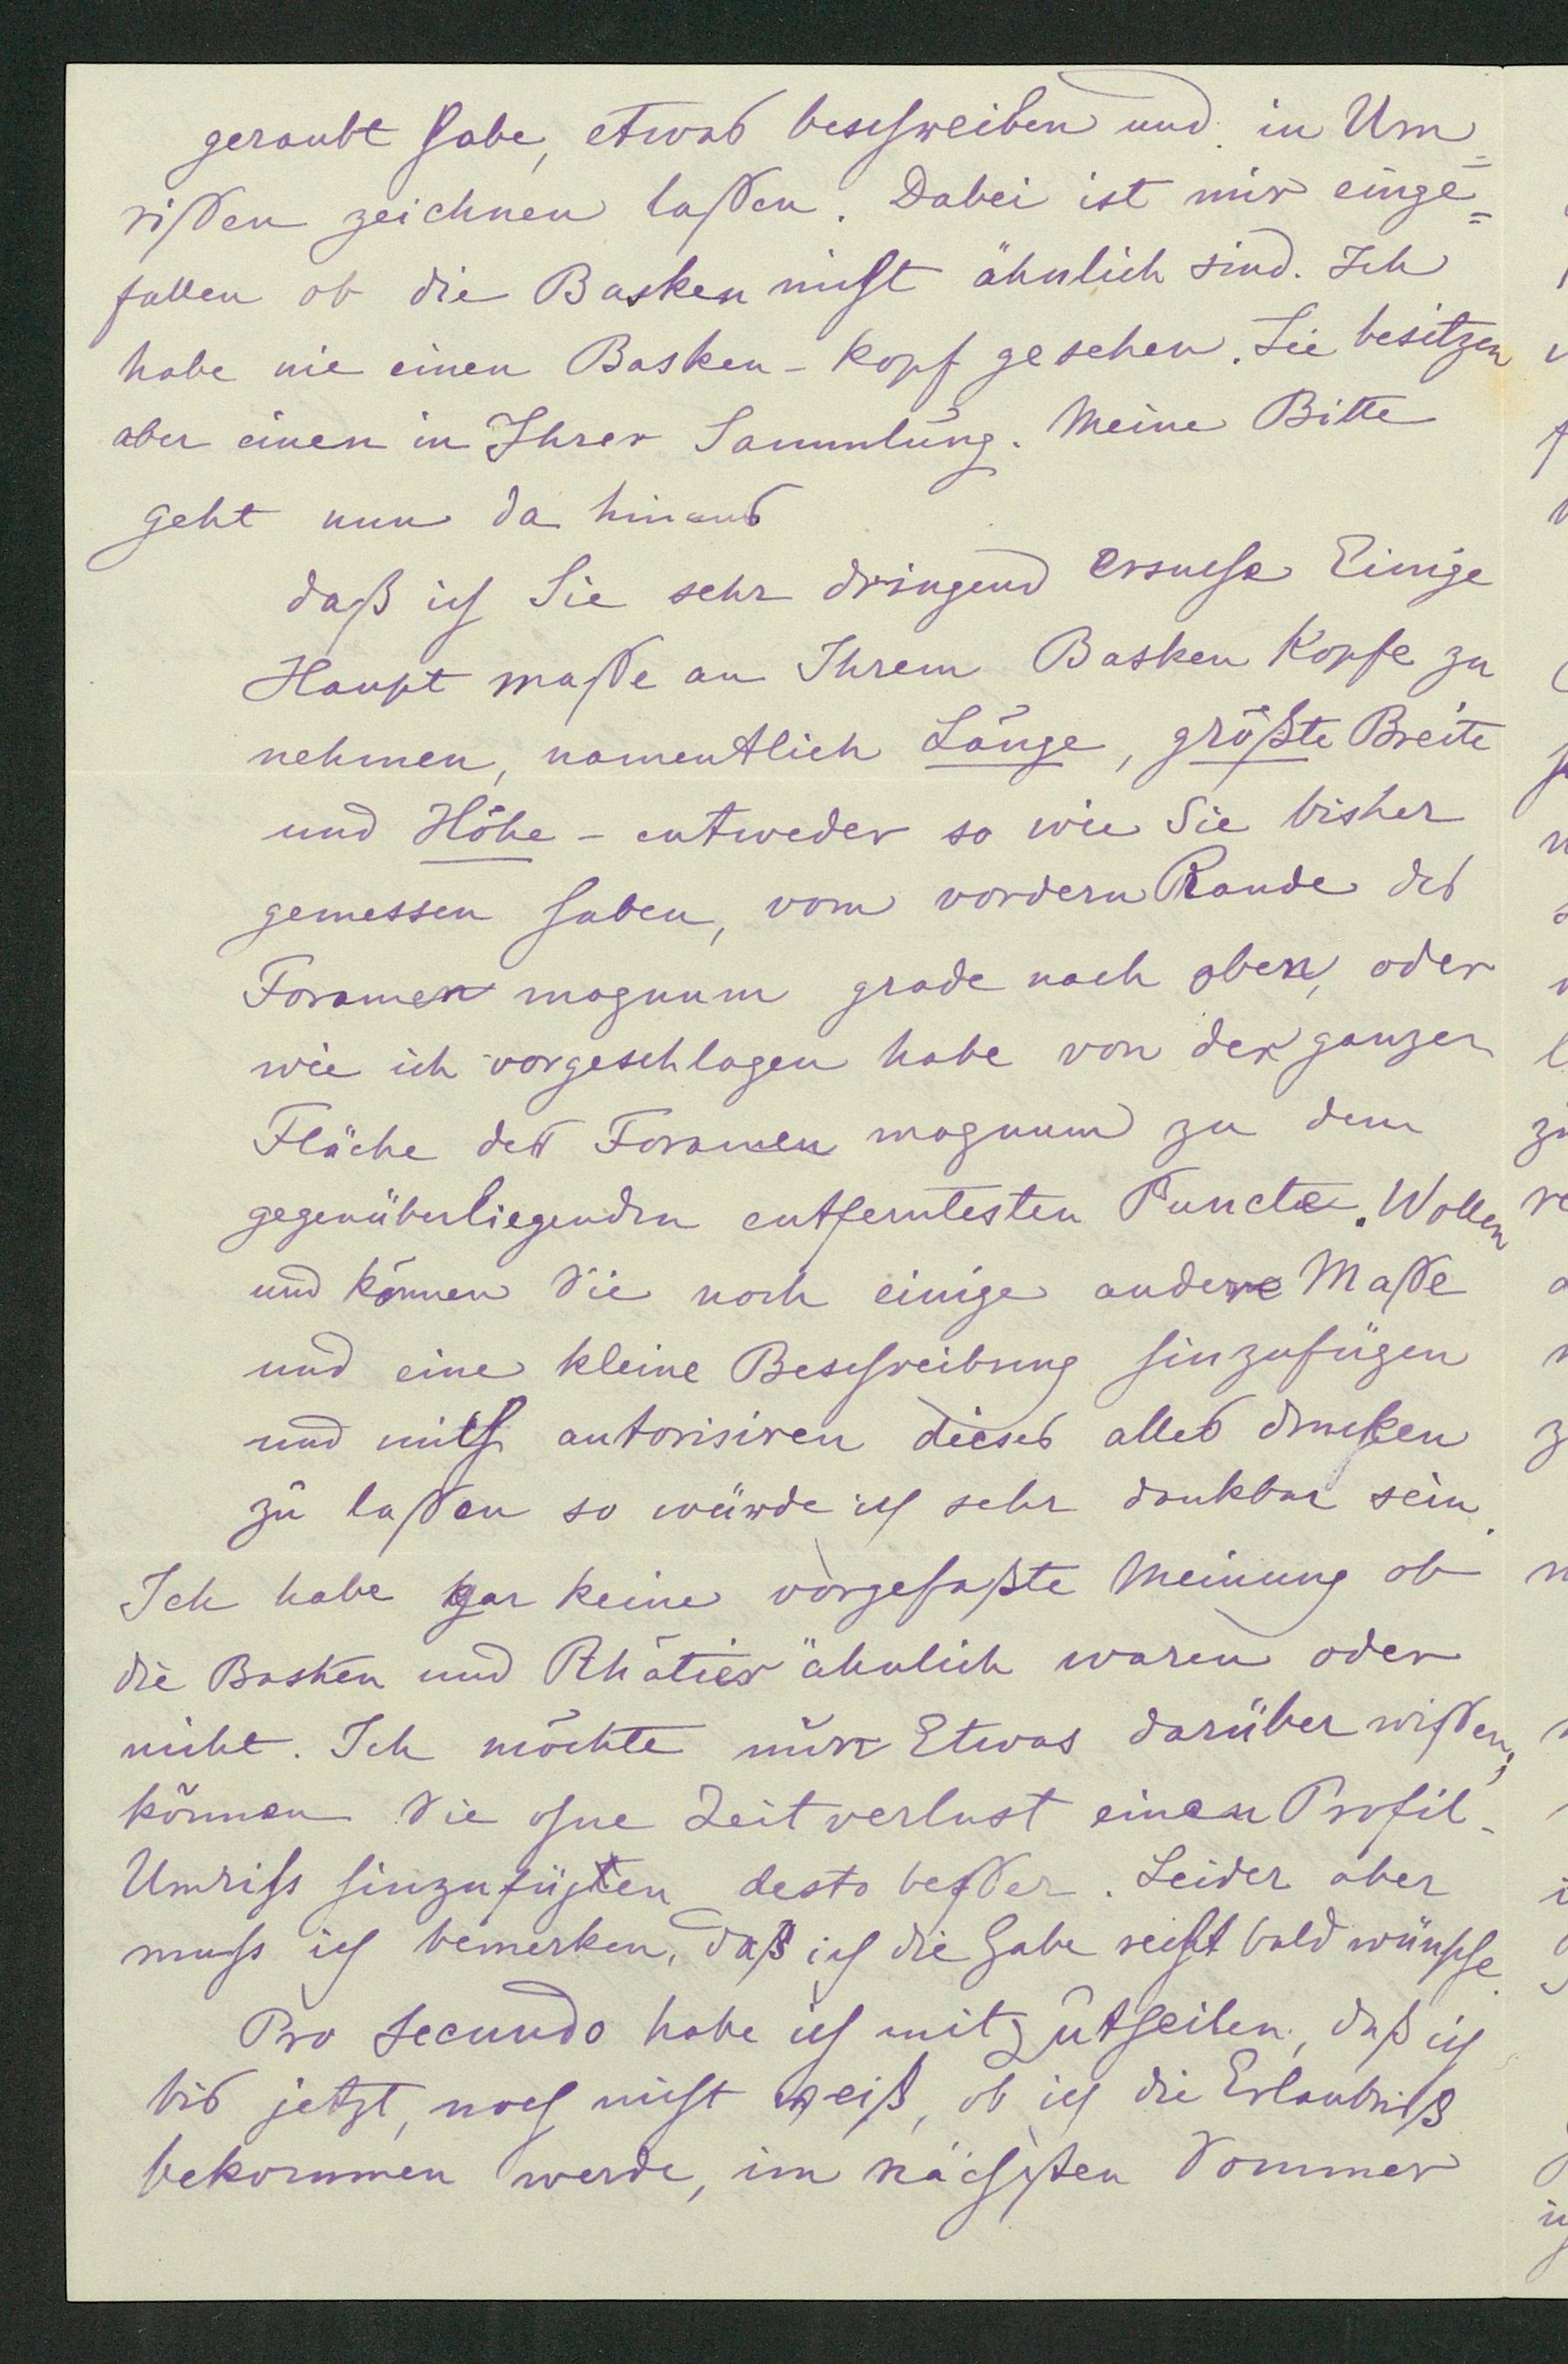 geraubt habe, etwas beschreiben und in Um=
rißen zeichnen laßen. Dabei ist mir einge=
fallen ob die Basken nicht ähnlich sind. Ich
habe nie einen Basken-Kopf gesehen. Sie besitzen
aber einen in Ihrer Sammlung. Meine Bitte
geht nun da hinaus
daß ich Sie sehr dringend ersuche Einige
Haupt maße an Ihrem Basken Kopfe zu
nehmen, namentlich Länge, größte Breite
und Höhe – entweder so wie Sie bisher
gemessen haben, vom vordern Rande des
Foramen magnum grade nach oben, oder
wie ich vorgeschlagen habe von der ganzen
Fläche des Foramen magnum zu dem
gegenüberliegenden entferntesten Puncte. Wollen
und können Sie noch einige andere Maße
und eine kleine Beschreibung hinzufügen
und mich autorisiren dieses alles drucken
zu laßen so würde ich sehr dankbar sein.
Ich habe gar keine vorgefaßte Meinung ob
die Basken und Rhätier ähnlich waren oder
nicht. Ich möchte nur Etwas darüber wißen,
können Sie ohne Zeitverlust einen Profil-
Umriss hinzufügen desto beßer. Leider aber
muss ich bemerken, daß ich die Gabe recht bald wünsche.
Pro secundo habe ich mitzutheilen, daß ich
bis jetzt, noch nicht weiß, ob ich die Erlaubniß
bekommen werde, im nächsten Sommer